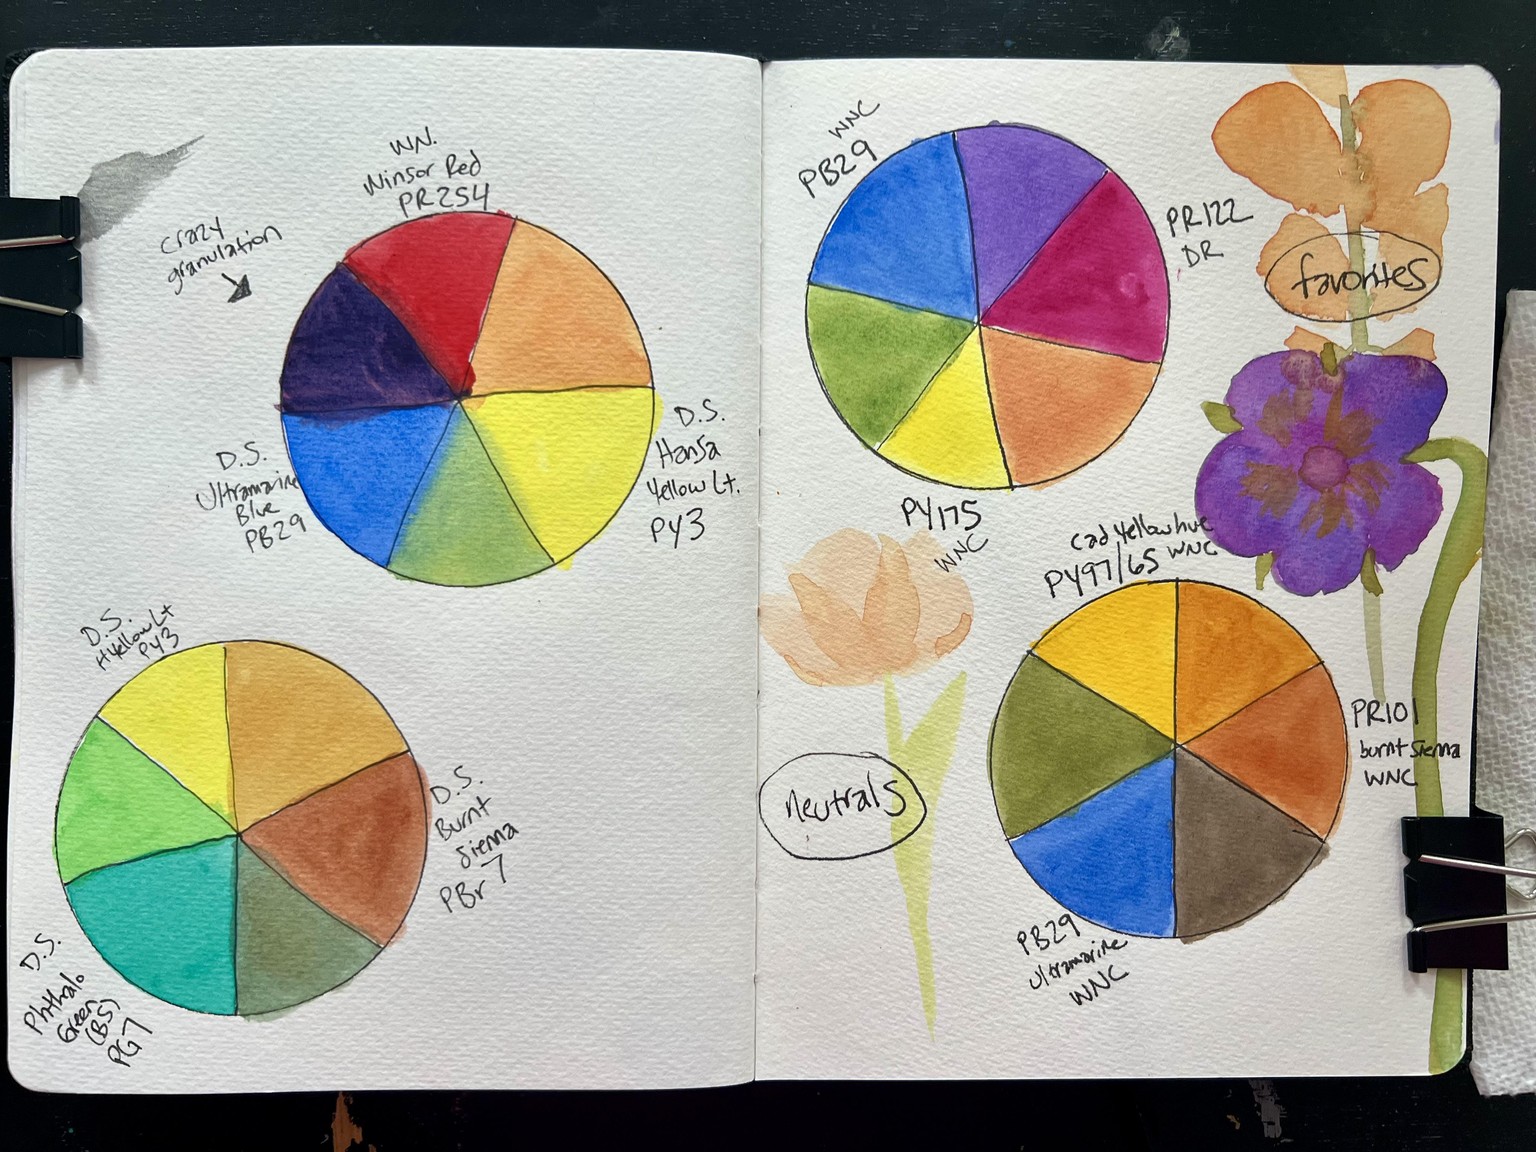 WN.
Winsor Red
PR254
crazy
granulation
D.S.
Hansa
Yellow Lt.
PY3
D.S.
Ultramarine
Blue
PB29
D.S.
HYellow Lt
PY3
D.S.
Burnt
Sienna
PBr 7
D.S.
Phthalo
Green
(BS)
PG7
WNC
PB29
PR122
DR
favorites
PY175
WNC
cad yellow hue
PY97/65 WNC
neutrals
PR101
burnt sienna
WNC
PB29
ultramarine
WNC